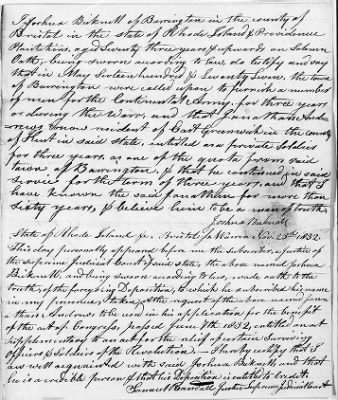 I Joshua Bicknell of Barrington in the county of
Bristol in the state of Rhode Island & Providence
Plantations, aged Seventy three years & upwards on Solemn
Oath, being sworn according to law do certify and say
that in May Seventeen hundred & Seventy Seven, the town
of Barrington were called upon to furnish a number
of men for the Continental Army, for three years
or during the Warr, and that Jonathan And-
rews now resident of East Greenwich in the county
of Kent in said state, enlisted as a private Soldier
for three years, as one of the quota from said
town of Barrington, & that he continued in said
service for the term of three years, and that I
have known the said Jonathan for more than
sixty years, & believe him to be a man of truth
Joshua Bicknell
State of Rhode Island &c. Bristol ss Warren Nov. 23d 1832.
This day personally appeared before me the subscriber, a justice of
the supreme Judicial Court of said state, the above named Joshua
Bicknell, and being sworn according to law, made oath to the
truth of the foregoing Deposition, to which he subscribed his name
in my presence, taken at the request of the above named Jona
than Andrews to be used in his application for the benefit
of the act of Congress, passed June 7th 1832, entitled an act
supplementary to an act for the relief of certain Surviving
Officers & Soldiers of the Revolution. I hereby certify that I
am well acquainted with said Joshua Bicknell and that
he is a credible person & that his Deposition is entitled to Credit.
Samuel Randall Justice Supreme Judicial Court